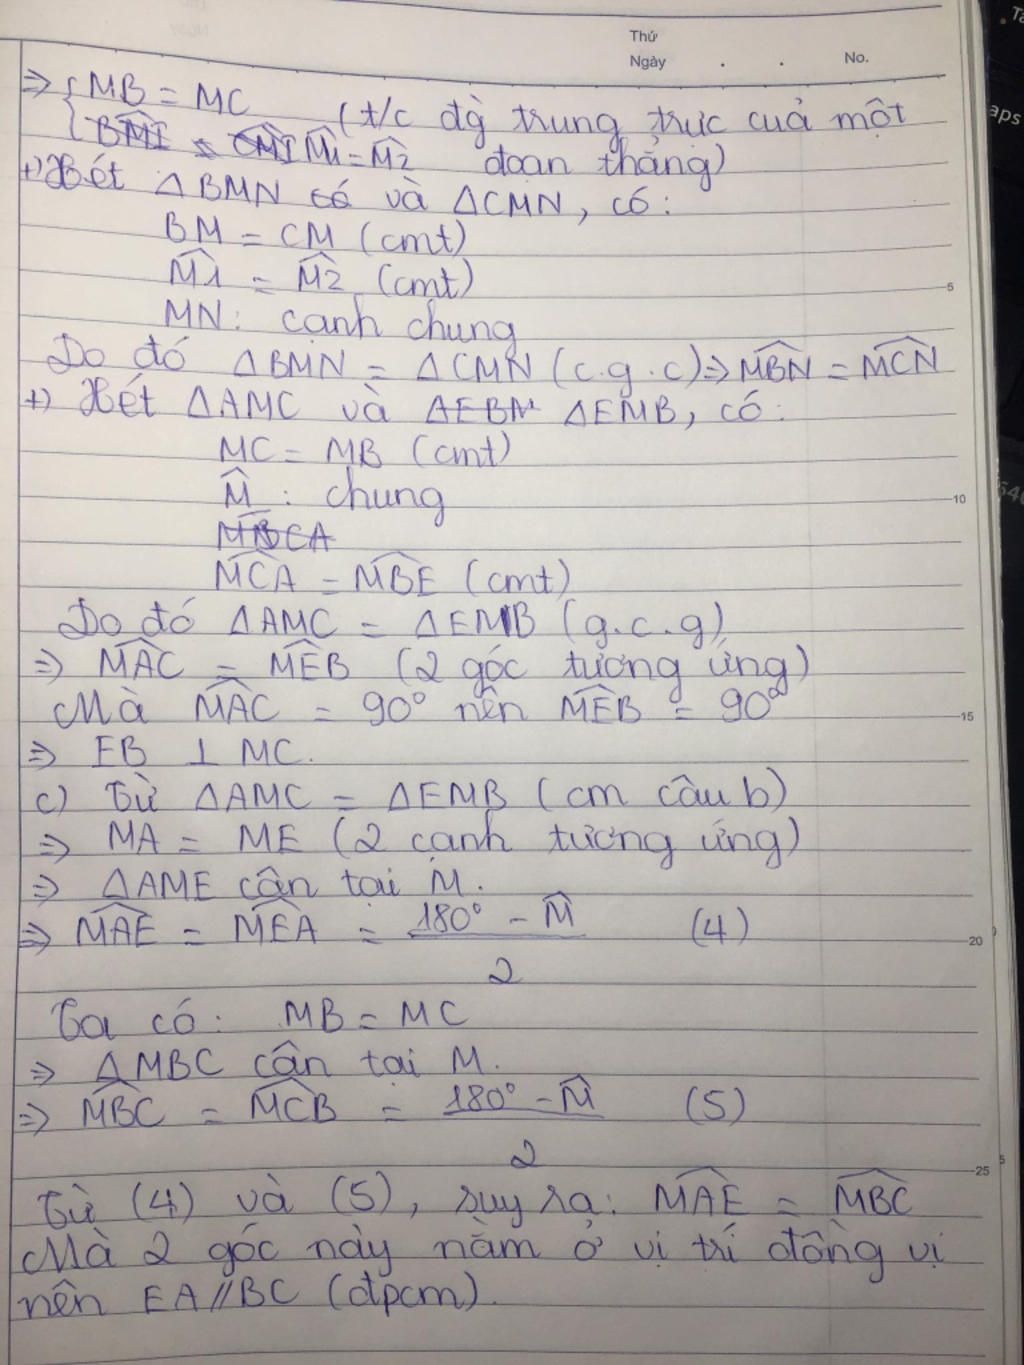 Thứ
Ngày . . No.
⇒ { MB = MC (t/c đg trung trực của một
BMI = CMI M1 = M2 đoạn thẳng)
+) Xét △BMN có và △CMN, có:
BM = CM (cmt)
M1 = M2 (cmt)
MN: cạnh chung
Do đó △BMN = △CMN (c.g.c) ⇒ MBN = MCN
+) Xét △AMC và △EBM △EMB, có:
MC = MB (cmt)
M : chung
MBCA
MCA = MBE (cmt)
Do đó △AMC = △EMB (g.c.g)
⇒ MAC = MEB (2 góc tương ứng)
Mà MAC = 90° nên MEB = 90°
⇒ EB ⊥ MC.
c) Từ △AMC = △EMB (cm câu b)
⇒ MA = ME (2 cạnh tương ứng)
⇒ △AME cân tại M.
⇒ MAE = MEA = 180° - M (4)
2
Ta có: MB = MC
⇒ △MBC cân tại M.
⇒ MBC = MCB = 180° - M (5)
2
Từ (4) và (5), suy ra: MAE = MBC
Mà 2 góc này nằm ở vị trí đồng vị
nên EA // BC (đpcm).
5
10
15
20
25
aps